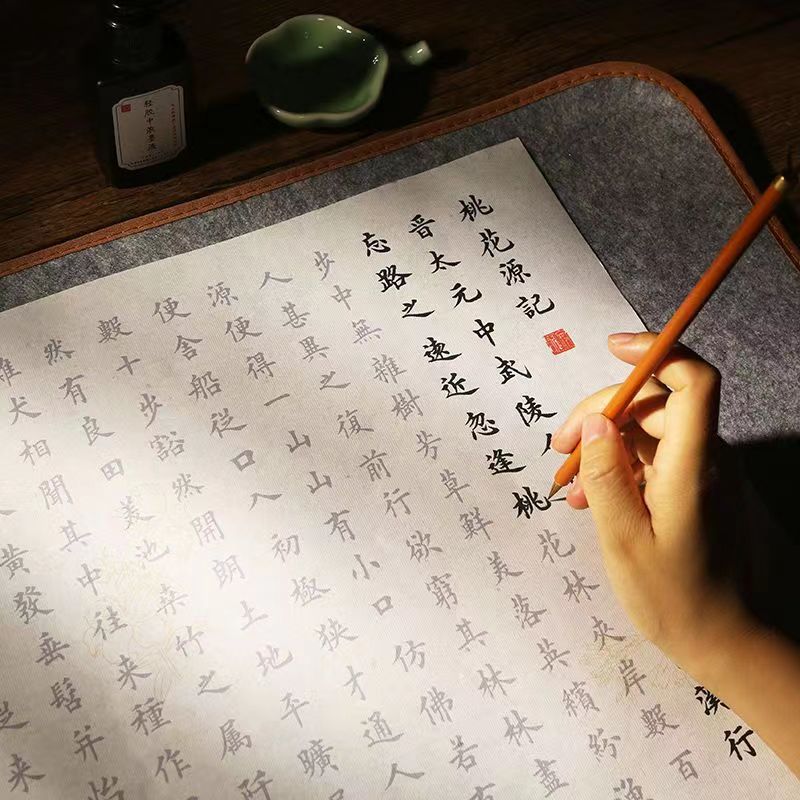 轻胶中浓墨液
桃花源記
晋太元中武陵人溪行
忘路之遠近忽逢桃花林夾岸數百
步中無雜樹芳草鮮美落英繽紛漁
人甚異之復前行欲窮其林林盡
源便得一山山有小口仿佛若有
便舍船從口入初極狹才通人
數十步豁然開朗土地平曠
然有良田美池桑竹之属阡
雞犬相聞其中往來種作
黃發垂髫并怡
來